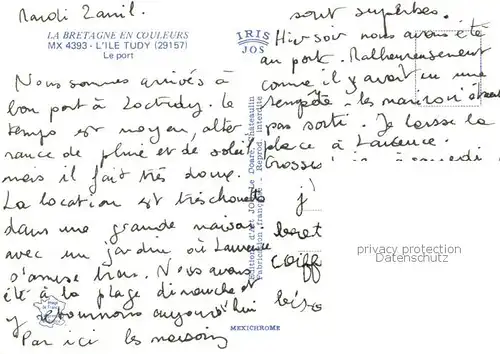 Mardi 2 avril.
LA BRETAGNE EN COULEURS
MX 4393 - L'ILE TUDY (29157)
Le port
Nous sommes arrivés à
bon port à Loctudy. Le
temps est moyen, alter
nance de pluie et de soleil
mais il fait très doux.
La location est très chouette
dans une grande maison
avec un jardin où Laurence
s'amuse bien. Nous avons
été à la plage dimanche et
y retournons aujourd'hui
Par ici les maisons
IRIS
JOS
Editions d'Art JOS Le Doaré, Châteaulin
Fabrication française - Reprod. interdite
MEXICHROME
sont superbes.
Hier soir nous avons été
au port. Malheureusement
comme il y avait eu une
tempête les marins n'étaient
pas sorti. Je laisse la
place à Laurence.
Grosses à samedi
j'
beret
coiff
bise
privacy protection
Datenschutz